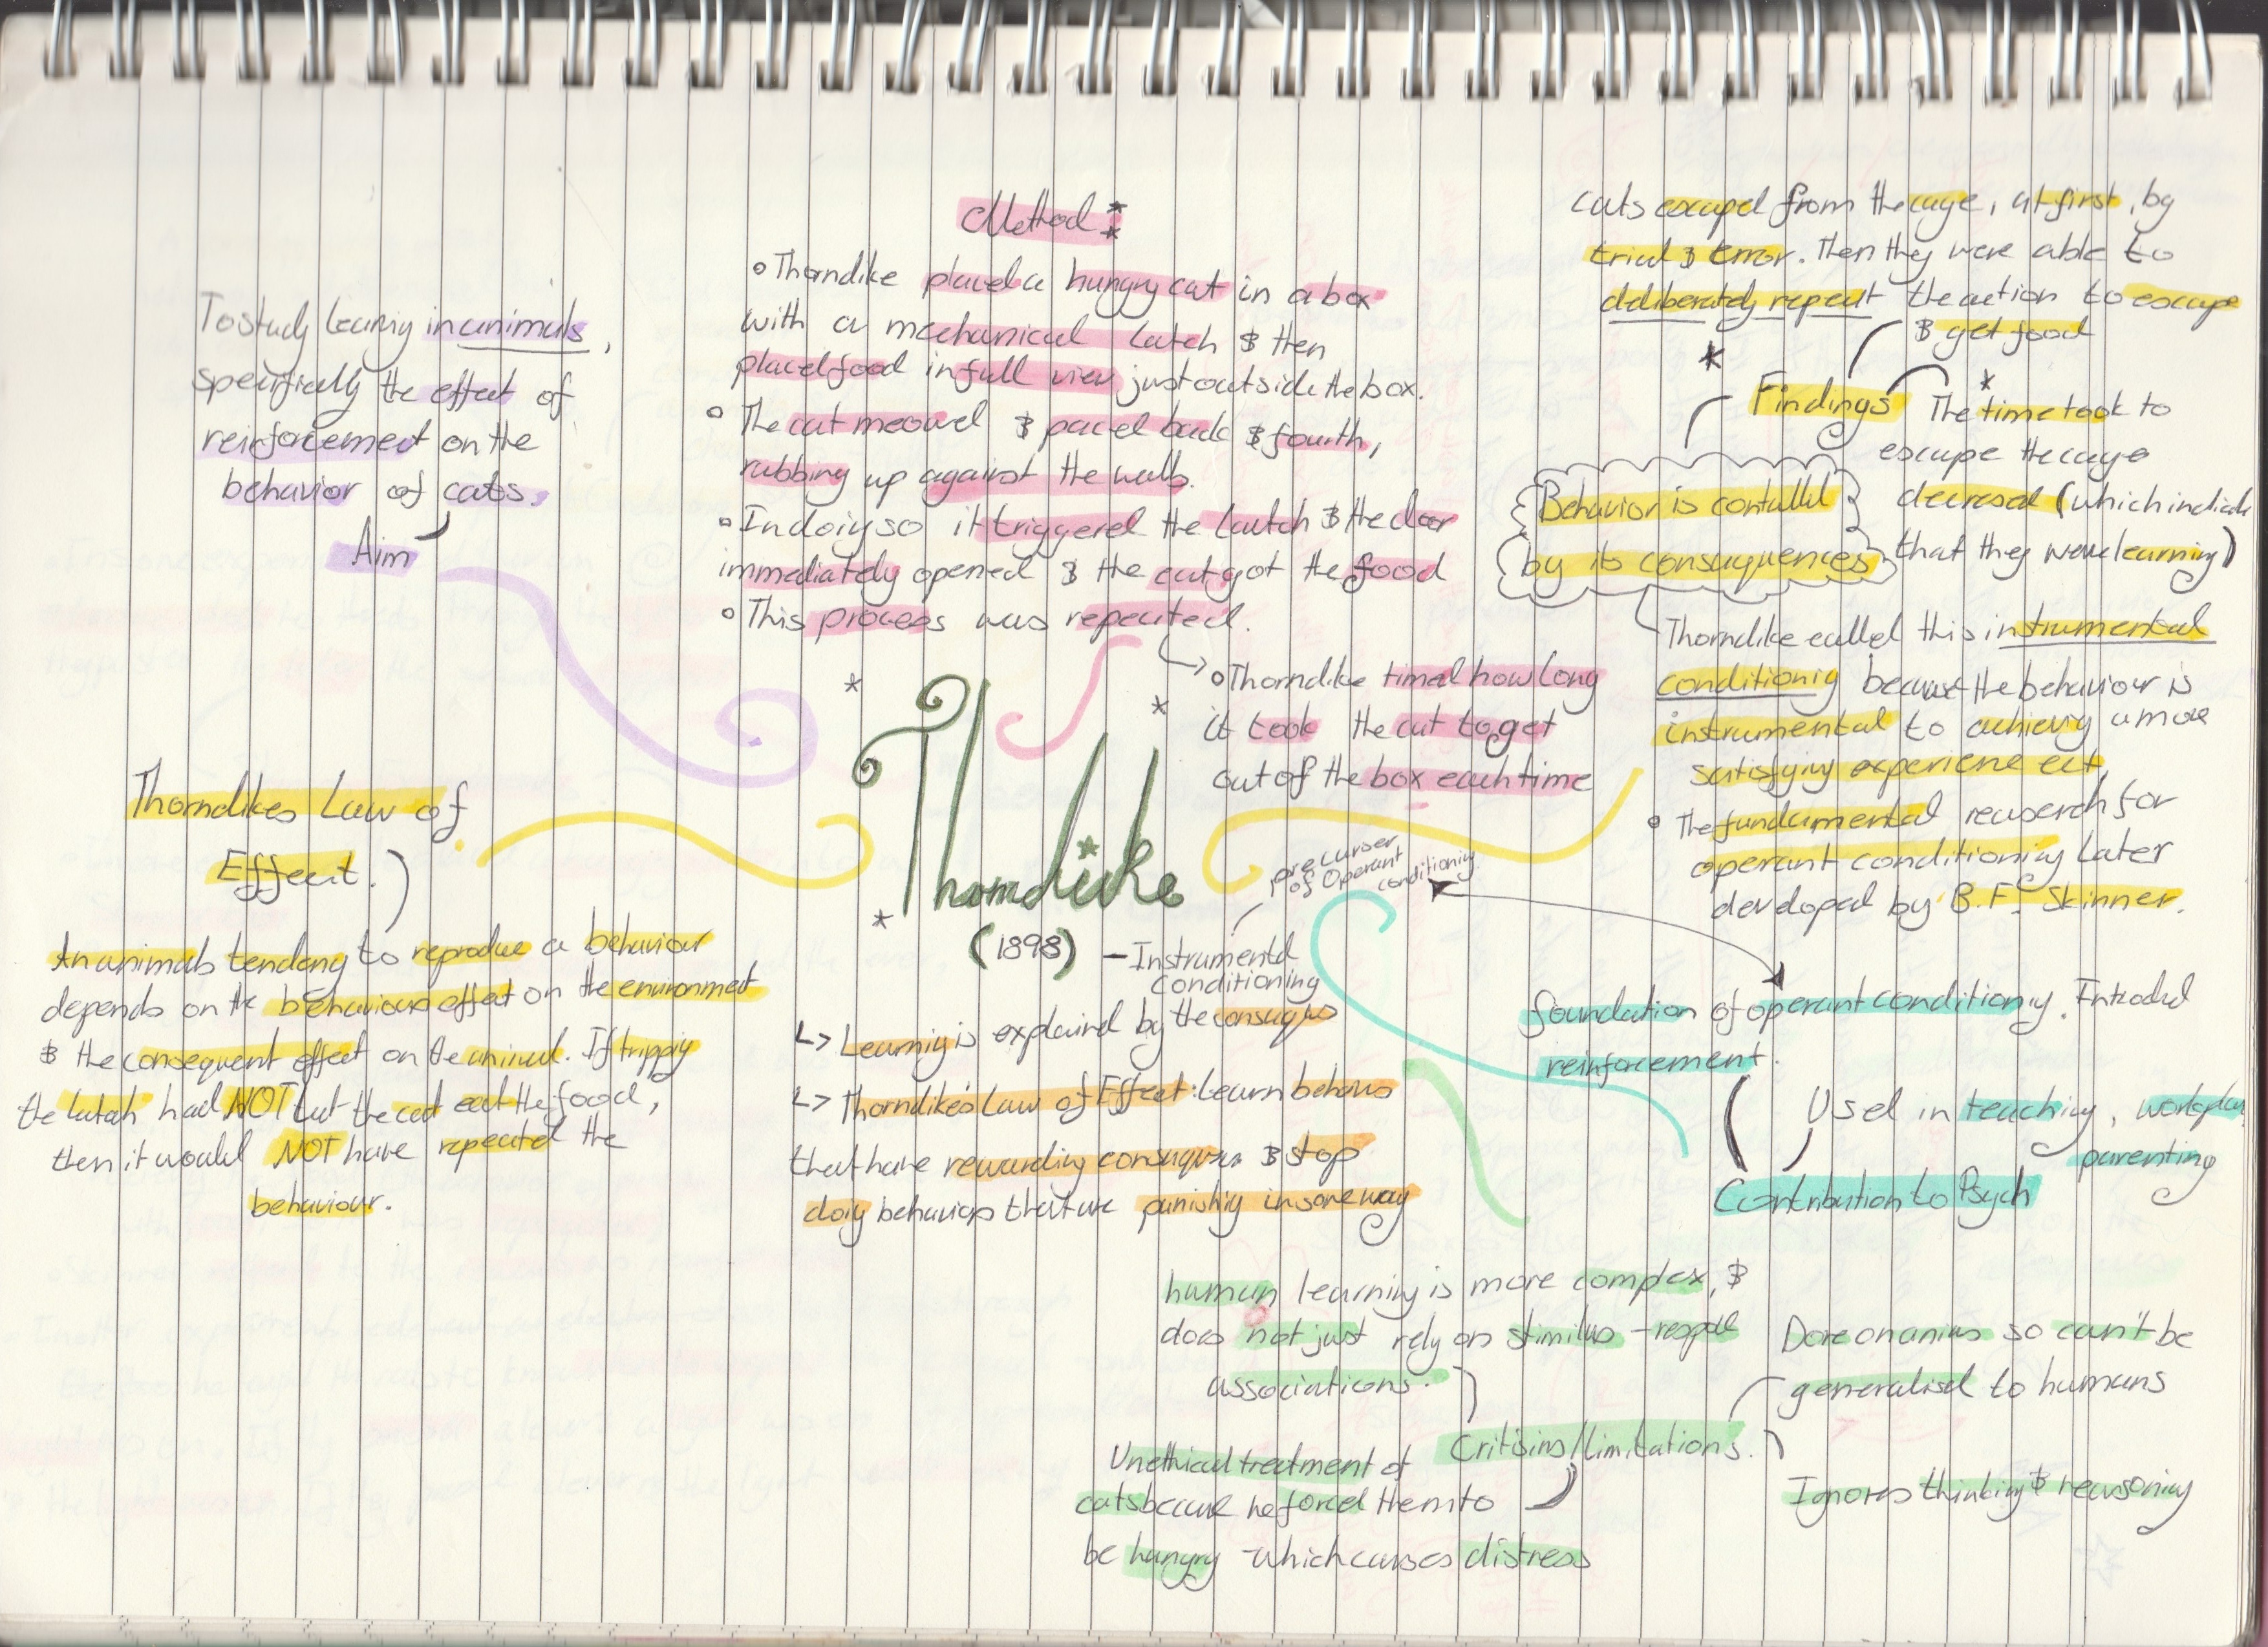 Method:
• Thorndike placed a hungry cat in a box
with a mechanical latch & then
placed food in full view just outside the box.
• The cat meowed & paced back & fourth,
rubbing up against the walls.
• In doing so it triggered the latch & the door
immediately opened & the cat got the food
• This process was repeated.
↳ • Thorndike timed how long
it took the cat to get
out of the box each time
To study learning in animals,
specifically the effect of
reinforcement on the
behavior of cats.
Aim
cats escaped from the cage, at first, by
trial & error. Then they were able to
deliberately repeat the action to escape
& get food
Findings
* The time took to
escape the cage
decresed (which indicate
that they were learning)
Behavior is contolled
by its consequences
Thorndike called this instrumental
conditioning because the behaviour is
instrumental to achieving a more
satisfying experience ect,
• The fundamental reaserch for
operant conditioning later
developed by B.F. Skinner.
Thorndikes Law of
Effect.
An animals tendency to reproduce a behaviour
depends on the behaviours effect on the environment
& the consequent effect on the animal. If tripping
the latch had NOT let the cat eat the food,
then it would NOT have repeated the
behaviour.
Thorndike
(1898) - Instrumental
Conditioning
precurser
of Operant
conditioning
↳ Learning is explained by the
↳ Thorndike's Law of Effect: Learn behaviors
that have rewarding & stop
doing behaviors that are punishing in some way
foundation of operant conditioning. Introduced
reinforcement.
Used in teaching, workplace,
parenting
Contribution to Psych
human learning is more complex, &
does not just rely on stimilus -
associations.
Done on so can't be
generalised to humans
/limitations.
Unethical treatment of
cats because he forced them to
be hungry - which causes distress
Ignores thinking & reasoning